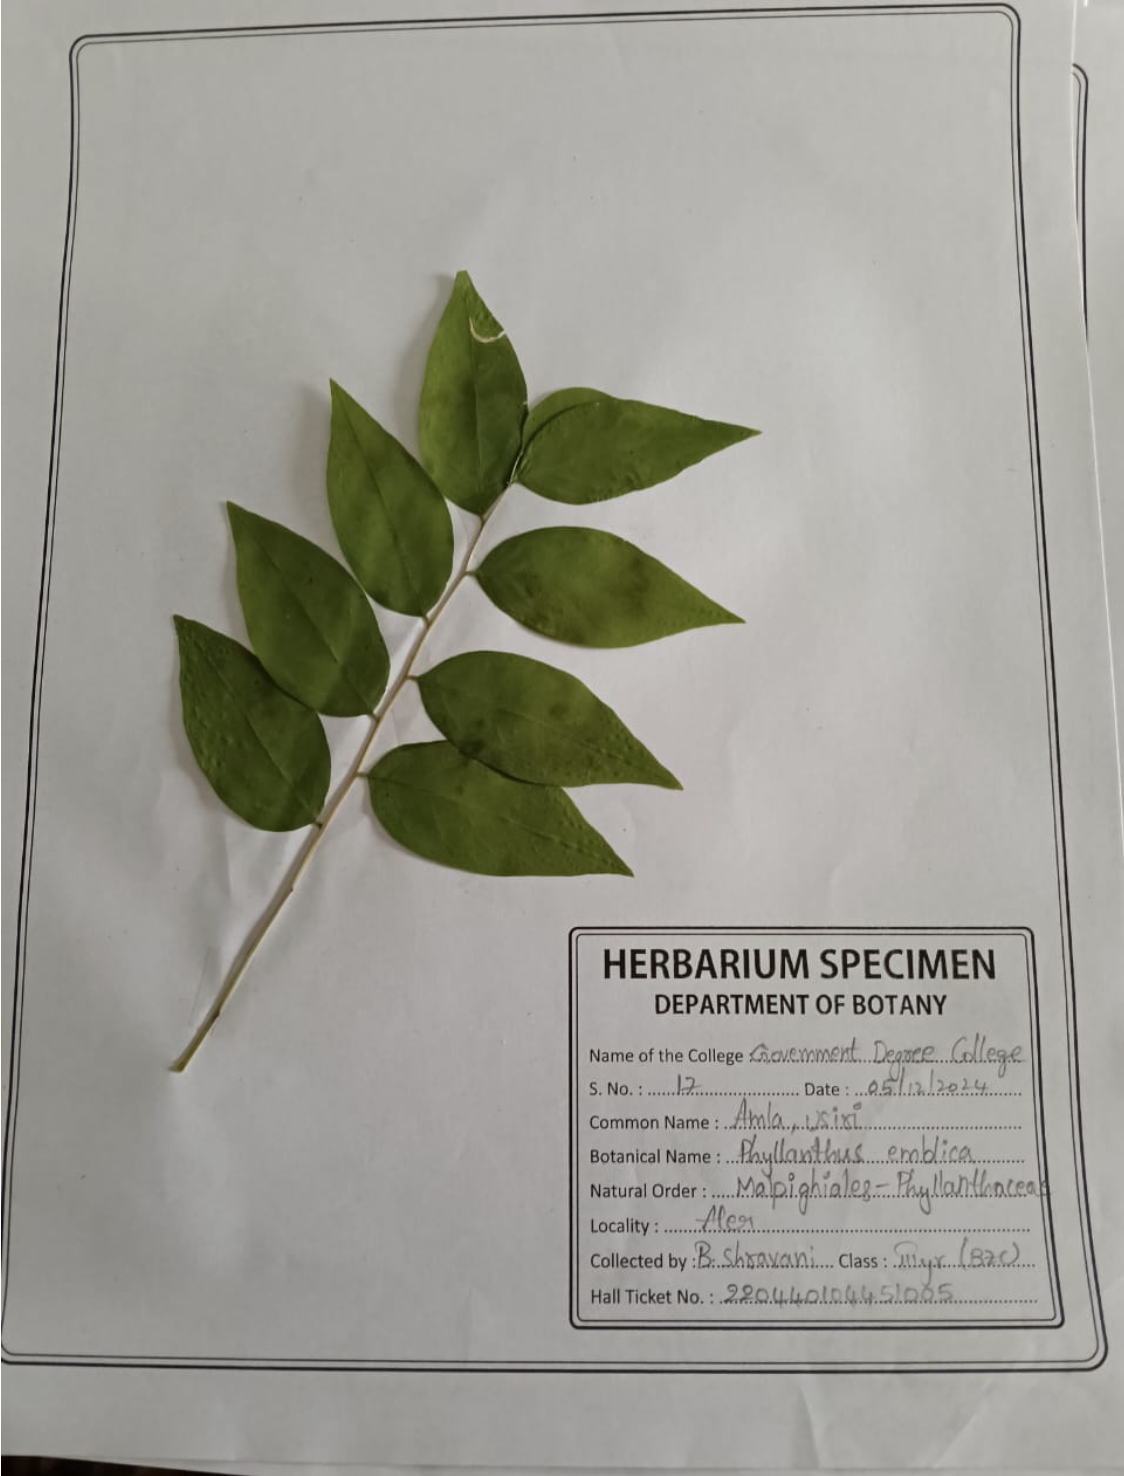 HERBARIUM SPECIMEN
DEPARTMENT OF BOTANY
Name of the College Government Degree College
S. No. : 17 Date : 05/12/2024
Common Name : Amla, usiri
Botanical Name : Phyllanthus emblica
Natural Order : Malpighiales - Phyllanthaceae
Locality : Aler
Collected by : B. Shravani Class : III yr (BZC)
Hall Ticket No. : 220440104451005